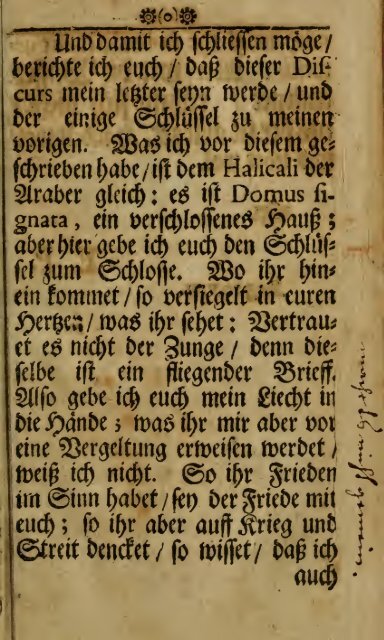 (o)
Und damit ich schliessen möge/
berichte ich euch/ daß dieser Dis-
curs mein letzter seyn werde/ und
der einige Schlüssel zu meinen
vorigen. Was ich vor diesem ge-
schrieben habe/ ist dem Halicali der
Araber gleich: es ist Domus si-
gnata, ein verschlossenes Hauß;
aber hier gebe ich euch den Schlüs-
sel zum Schlosse. Wo ihr hin-
ein kommet/ so versiegelt in euren
Hertzen/ was ihr sehet: Vertrau-
et es nicht der Zunge/ denn die-
selbe ist ein fliegender Brieff.
Also gebe ich euch mein Liecht in
die Hände; was ihr mir aber vor
eine Vergeltung erweisen werdet/
weiß ich nicht. So ihr Frieden
im Sinn habet/ sey der Friede mit
euch; so ihr aber auff Krieg und
Streit dencket/ so wisset/ daß ich
auch